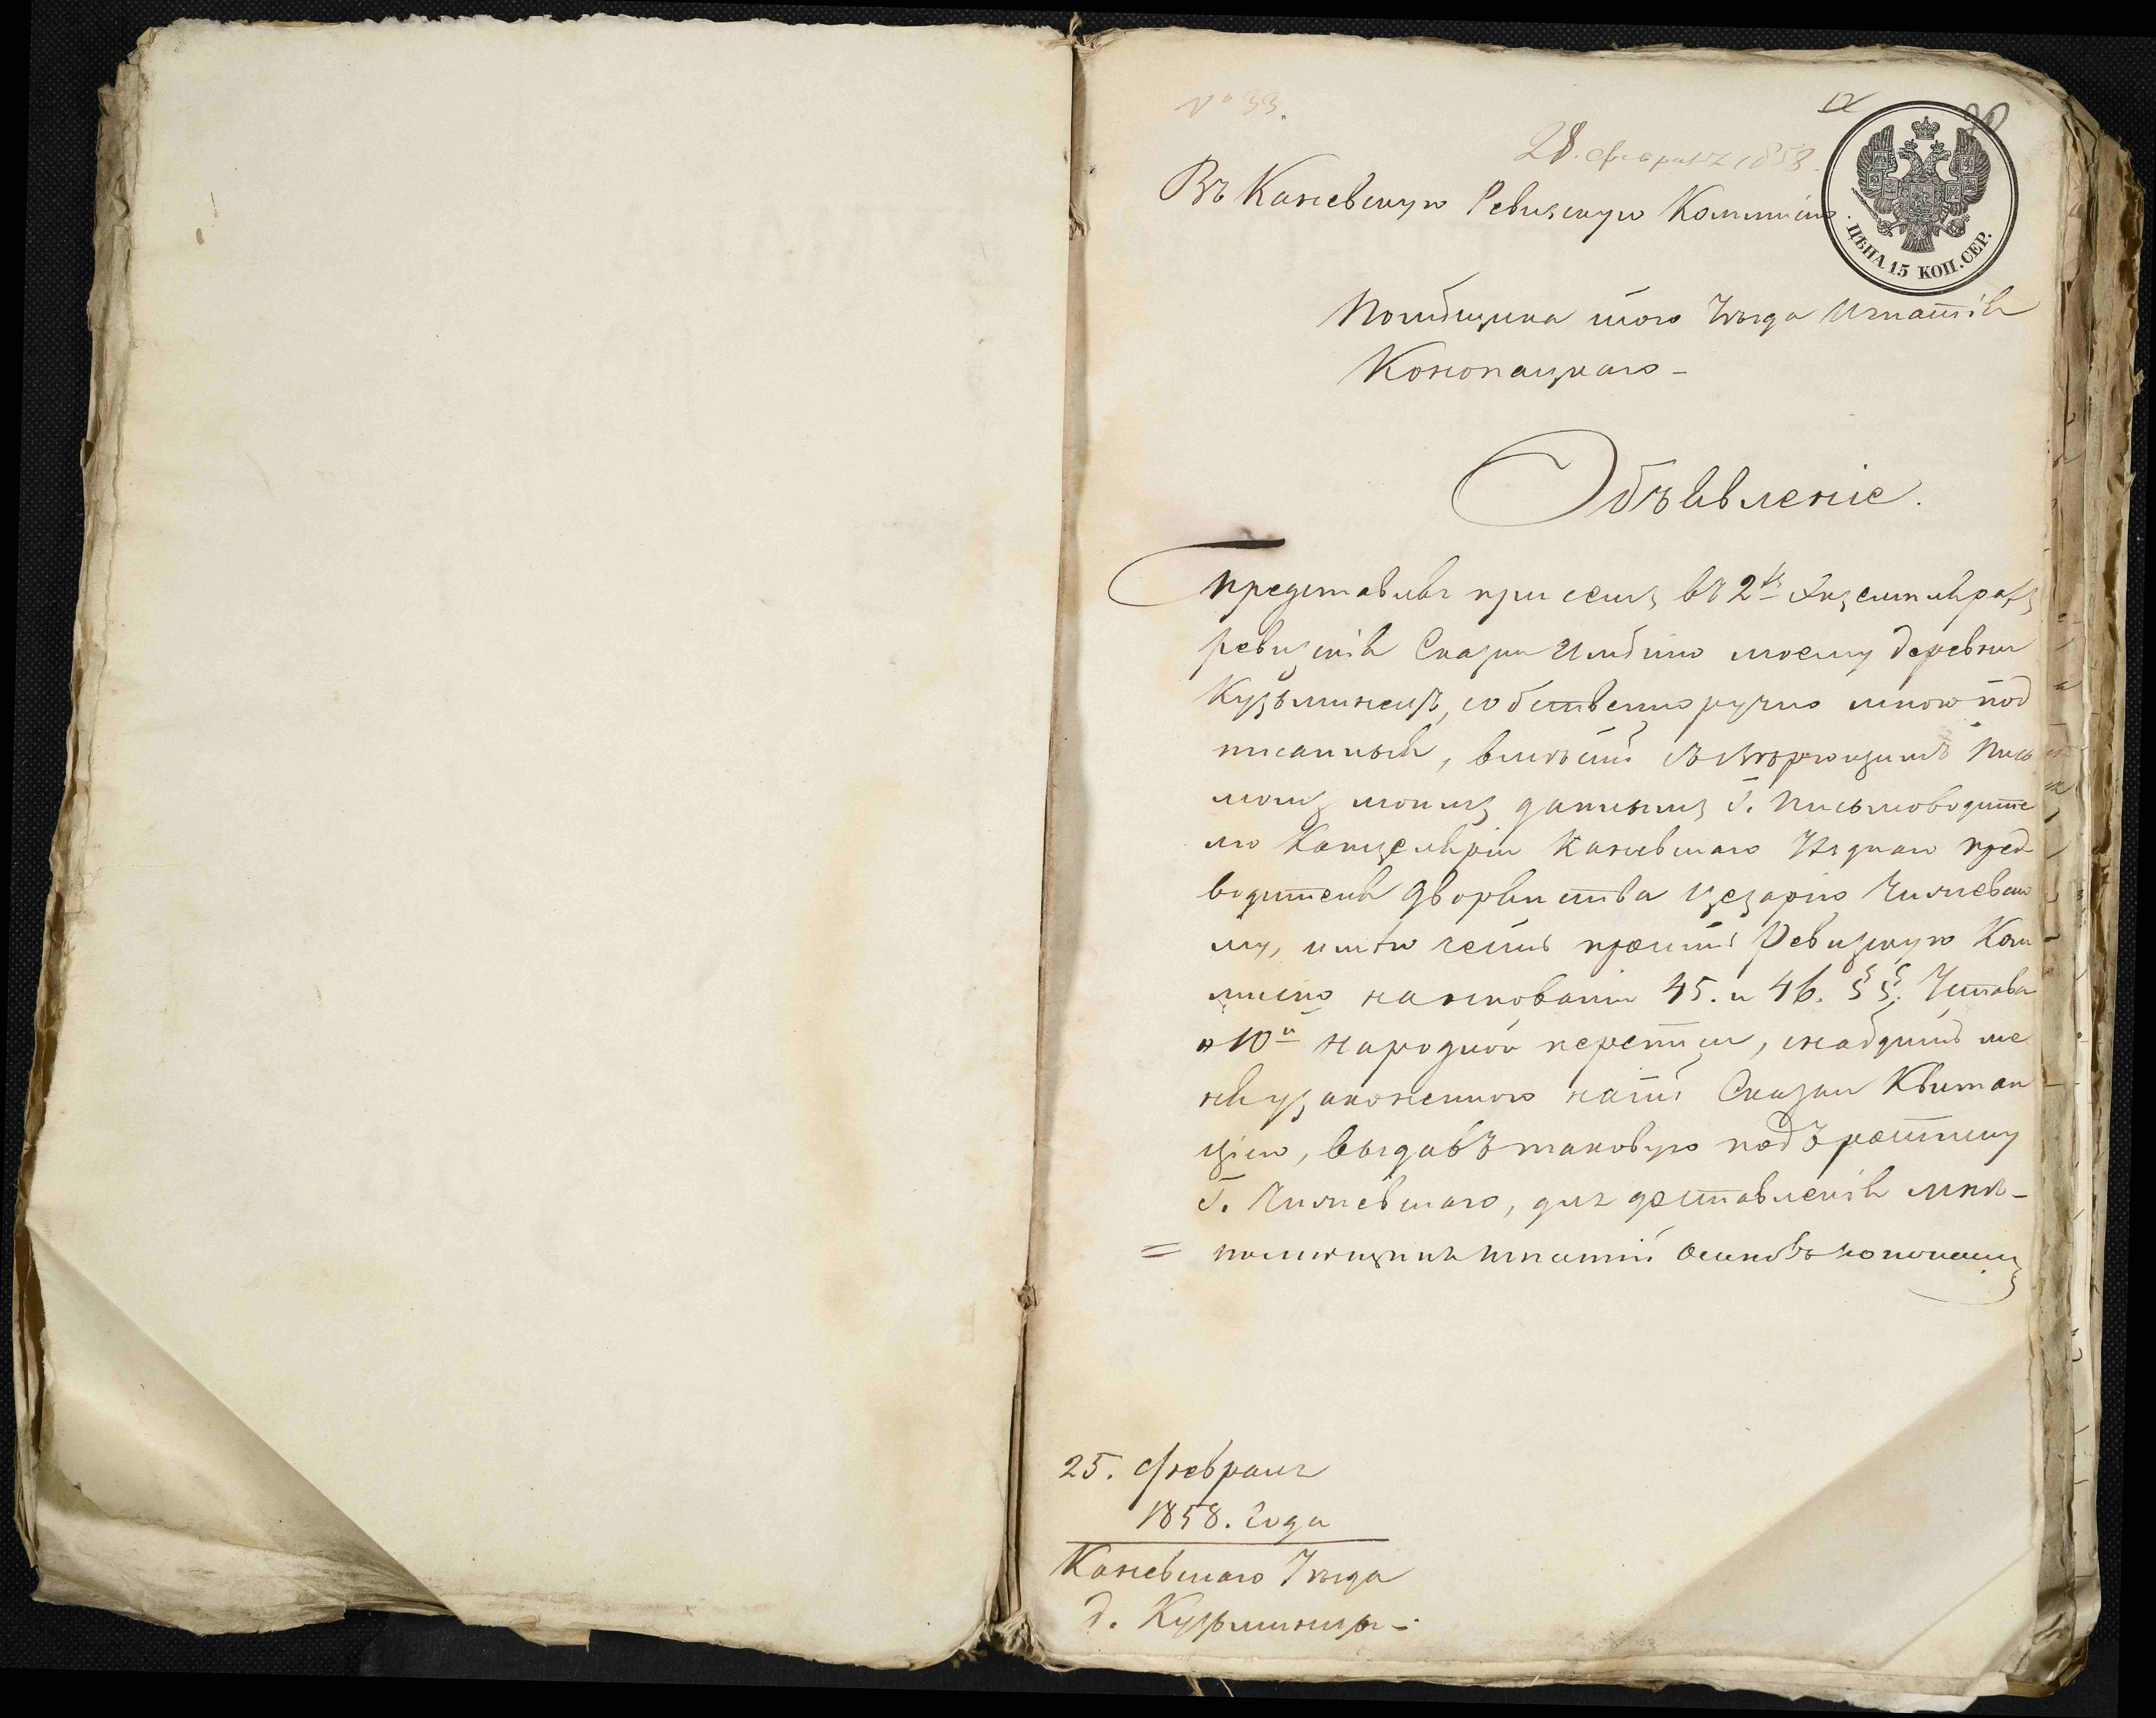 № 33.
28. февраля 1858.
Въ Каневскую Ревизскую Коммисію.
ЦѢНА 15 КОП. СЕР.
Помѣщика того Уѣзда Игнатія
Конопацкаго -
Объявленіе.
Представляя при семъ въ 2хъ Экземплярахъ
ревизскія Сказки Имѣнію моему деревни
Кузьминецъ, собственноручно мною под
писанныя, вмѣстѣ съ вѣрющимъ Пись
момъ моимъ даннымъ Г. Письмоводите
лю Канцеляріи Каневскаго Уѣзднаго пред
водителя Дворянства Цезарію
му, имѣю честь просить Ревизскую Ком
мисію наоснованіи 45. и 46. §§. Устава
о 10й народной переписи, снабдить ме
ня узаконенною натѣ Сказки Квитан
ціею, выдавъ таковую подъ росписку
Г. для доставленія мнѣ -
= помѣщикъ Игнатій Конопацкій
25. Февраля
1858. Года
Каневскаго Уѣзда
д. Кузьминцы -